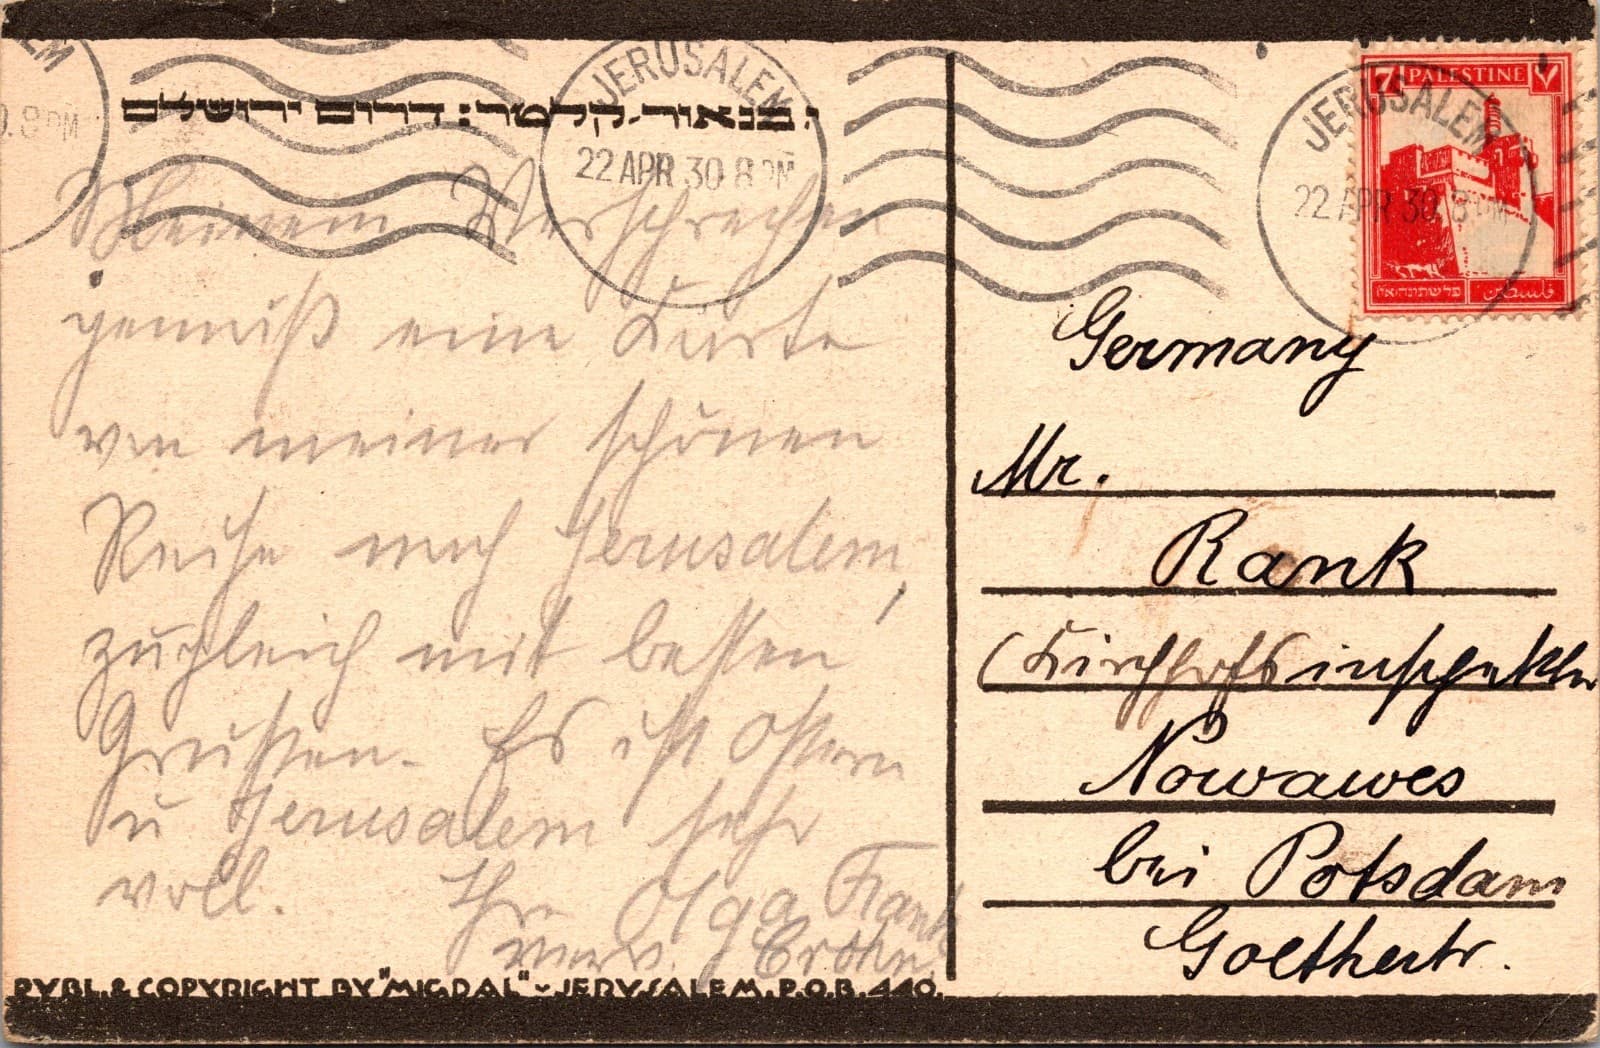 JERUSALEM
22 APR 30 8 PM
JERUSALEM
22 APR 30 8 PM
8 PM
7 PALESTINE 7
פלשתינה א״י
فلسطين
י. בנאור-קלטר: דרום ירושלם
Meinem Versprechen
gemäß eine Karte
von meiner schönen
Reise nach Jerusalem,
zugleich mit besten
Grüßen. Es ist Ostern
u Jerusalem sehr
voll. Ihre Olga Frank
Germany
Mr.
Rank
(Kirchhofsinspektor
Nowawes
bei Potsdam
Goethestr.
PUBL. & COPYRIGHT BY "MIGDAL" - JERUSALEM. P.O.B. 440.